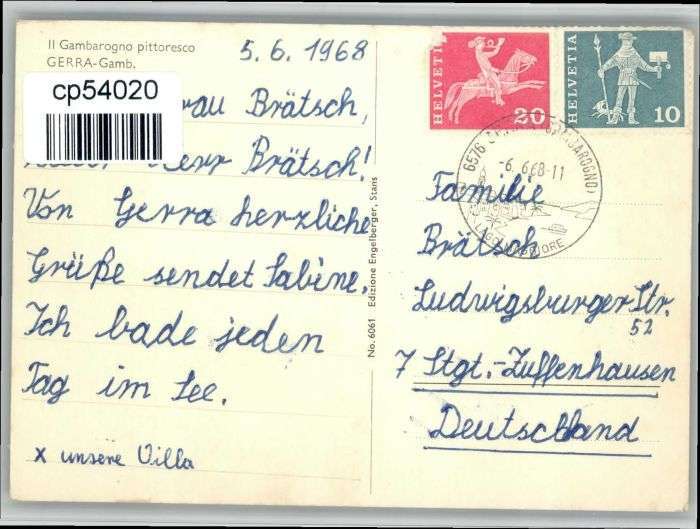 Il Gambarogno pittoresco
GERRA-Gamb.
5.6.1968
cp54020
Brätsch,
Herr Brätsch!
Von Gerra herzliche
Grüße sendet Sabine.
Ich bade jeden
Tag im See.
x unsere Villa
No. 6061 Edizione Engelberger, Stans
HELVETIA
20
HELVETIA
10
6576
-6.6.68-11
LAGO MAGGIORE
Familie
Brätsch
Ludwigsburger Str.
52
7 Stgt.-Zuffenhausen
Deutschland